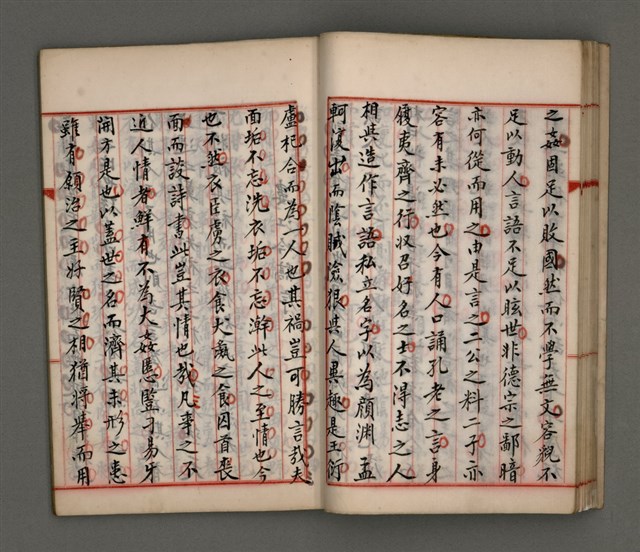 之姦固足以敗國然而不學無文容貌不
足以動人言語不足以眩世非德宗之鄙暗
亦何從而用之由是言之二公之料二子亦
容有未必然也今有人口誦孔老之言身
履夷齊之行收召好名之士不得志之人
相與造作言語私立名字以為顏淵孟
軻復出而陰賊險狠與人異趣是王衍
盧杞合而為一人也其禍豈可勝言哉夫
面垢不忘洗衣垢不忘澣此人之至情也今
也不然衣臣虜之衣食犬彘之食囚首喪
面而談詩書此豈其情也哉凡事之不
近人情者鮮有不為大姦慝豎刁易牙
開方是也以蓋世之名而濟其未形之患
雖有願治之主好賢之相猶將舉而用